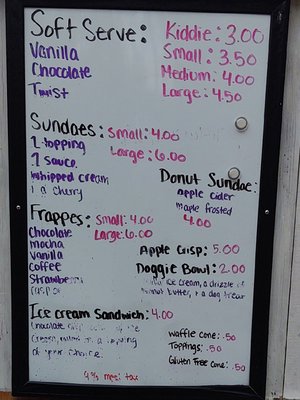 Soft Serve:
Vanilla
Chocolate
Twist
Kiddie: 3.00
Small: 3.50
Medium: 4.00
Large: 4.50
Sundaes: Small: 4.00
Large: 6.00
1 topping
1 sauce
whipped cream
& a cherry
Donut Sundae:
apple cider
maple frosted
4.00
Frappes: Small: 4.00
Large: 6.00
Chocolate
mocha
vanilla
coffee
Strawberry
Apple Crisp: 5.00
Doggie Bowl: 2.00
ice cream, a drizzle of
butter, & a dog treat
Ice cream Sandwich: 4.00
Chocolate chip
cream, in a topping
of your choice.
waffle cone: .50
Toppings: .50
Gluten Free Cone: .50
tax